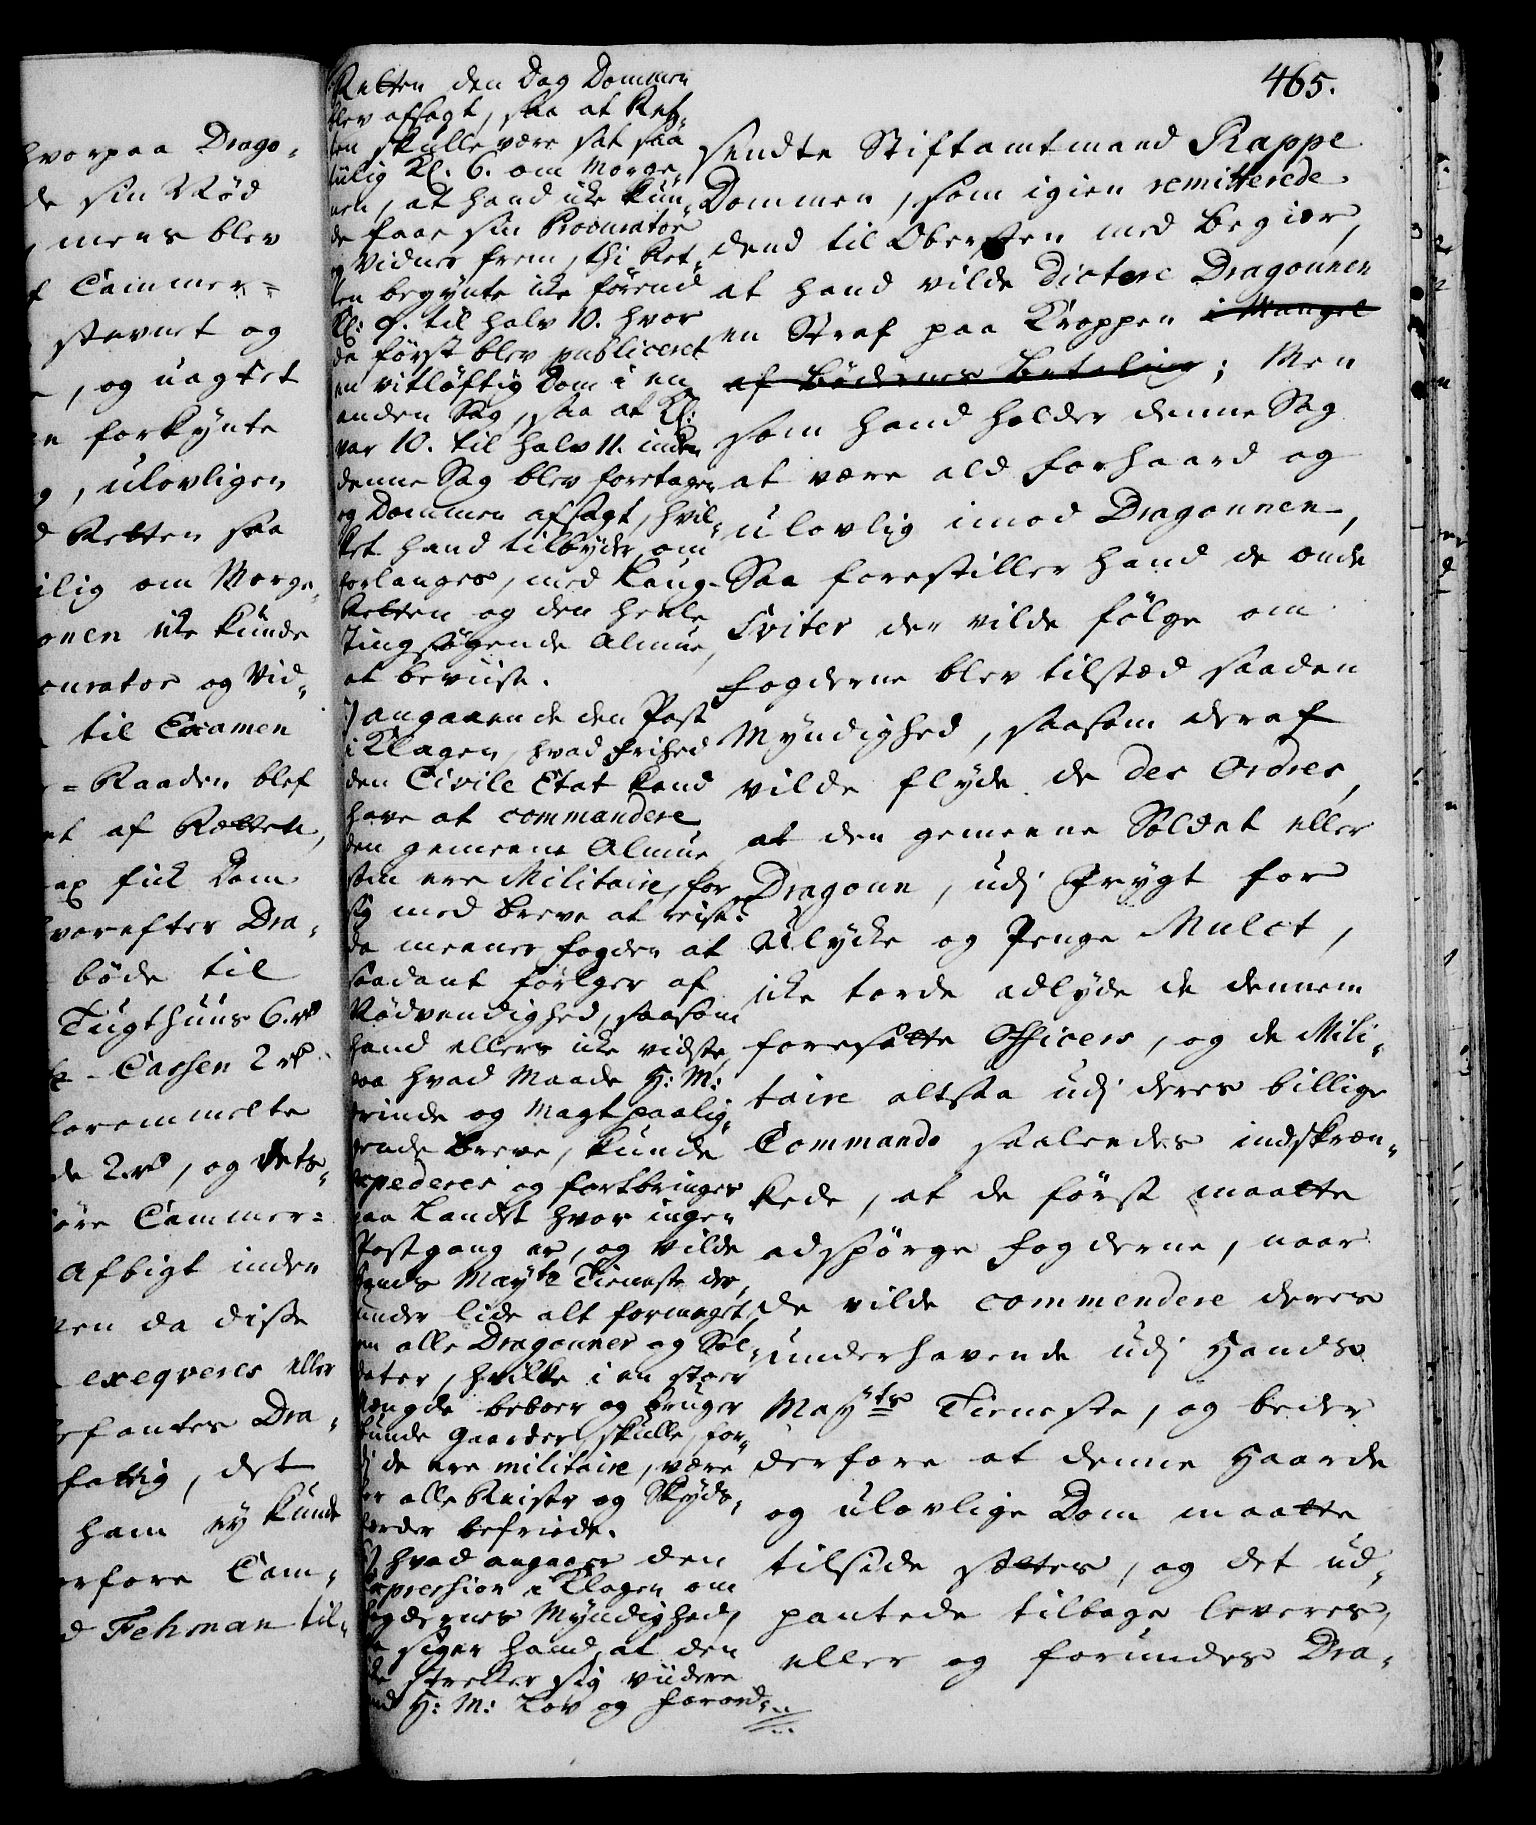 465.
hvorpaa Drago-
de sin Nød
mens blev
Cammer=
stevnet og
, og uagtet
forkynte
, ulovligen
Retten saa
ilig om Morge-
onen icke kunde
curator og Vid-
til Examen
=Raaden blef
et af Retten,
fick Dom
vorefter Dra-
bøde til
Tugthuus 6. rd
Cassen 2 rd
forommelte
de 2. rd, og
øre Cammer=
Afbigt inden
en da disse
exeqveres eller
Dra-
fattig, det
ham ey kunde
erfore Cam-
d Fehman til-
Retten den Dag Dommen
blev afsagt, saa at Ret-
ten skulle være sat saa
tiilig Kl. 6. om Morge-
nen, at hand icke kun-
de faae sin Procurator
og Vidner frem, thi Ret-
ten begynte icke førend
Kl: 9. til halv 10. hvor
da først blev publiceret
en vitløftig Dom i en
anden Sag, saa at Kl:
var 10. til halv 11. inden
denne Sag blev foretagen
og Dommen afsagt, hvil-
ket hand tilbyder, om
forlanges, med Laug-
Retten og den heele
Tingsøgende Almue,
at beviise.
7) angaaende den Post
i Klagen, hvad frihed
den Civile Etat kand
have at commandere
den gemeene Almue,
som ere Militaire, for
sig med Breve at reise?
da meener fogden at
saadant følger af
Nødvendighed, saasom
hand ellers icke vidste,
paa hvad Maade H: M:
Ærinde og Magt paalig-
gende Breve, kunde
expederes og fortbringes
paa Landet hvor ingen
Postgang er, og vilde
Hands Mayts Tieneste der-
under lide alt formeget,
om alle Dragouner og Sol-
dater, hvilke i en stoer
Mængde beboer og bruger
Bunde Gaarder, skulle, for-
di de ere militaire, være
for alle Reiser og Skyds-
færder befriede.
8) hvad angaaer den
Expression i Klagen om
fogdernes Myndighed,
da siger hand, at den
icke strekker sig viidere
end H: M: Lov og Forord-
sendte Stiftamtmand Rappe
Dommen, som igien remitterede
dend til Obersten med begier,
at hand vilde dictere Dragounen
en Straf paa Kroppen i Mangel
af Bødernes Betaling; Men
som hand holder denne Sag
at være ald forhaard og
ulovlig imod Dragounen,
Saa forestiller hand de onde
Sviter der vilde følge om
fogderne blev tilstæd saadan
Myndighed, saasom deraf
vilde flyde de Des Ordres,
at den gemeene Soldat eller
Dragoun, udj Frygt for
Ulycke og Penge Mulct,
icke torde adlyde de dennem
foresatte Officers, og de Mili-
taire altsaa udj deres billige
Commando saaledes indskræn-
kede, at de først maatte
adspørge fogderne, naar
de vilde commendere deres
underhavende udj Hands
Mayts Tieneste, og beder
derfore at denne Haarde
og ulovlige Dom maatte
tilside sættes, og det ud-
pantede tilbage leveres,
eller og forundes Dra-